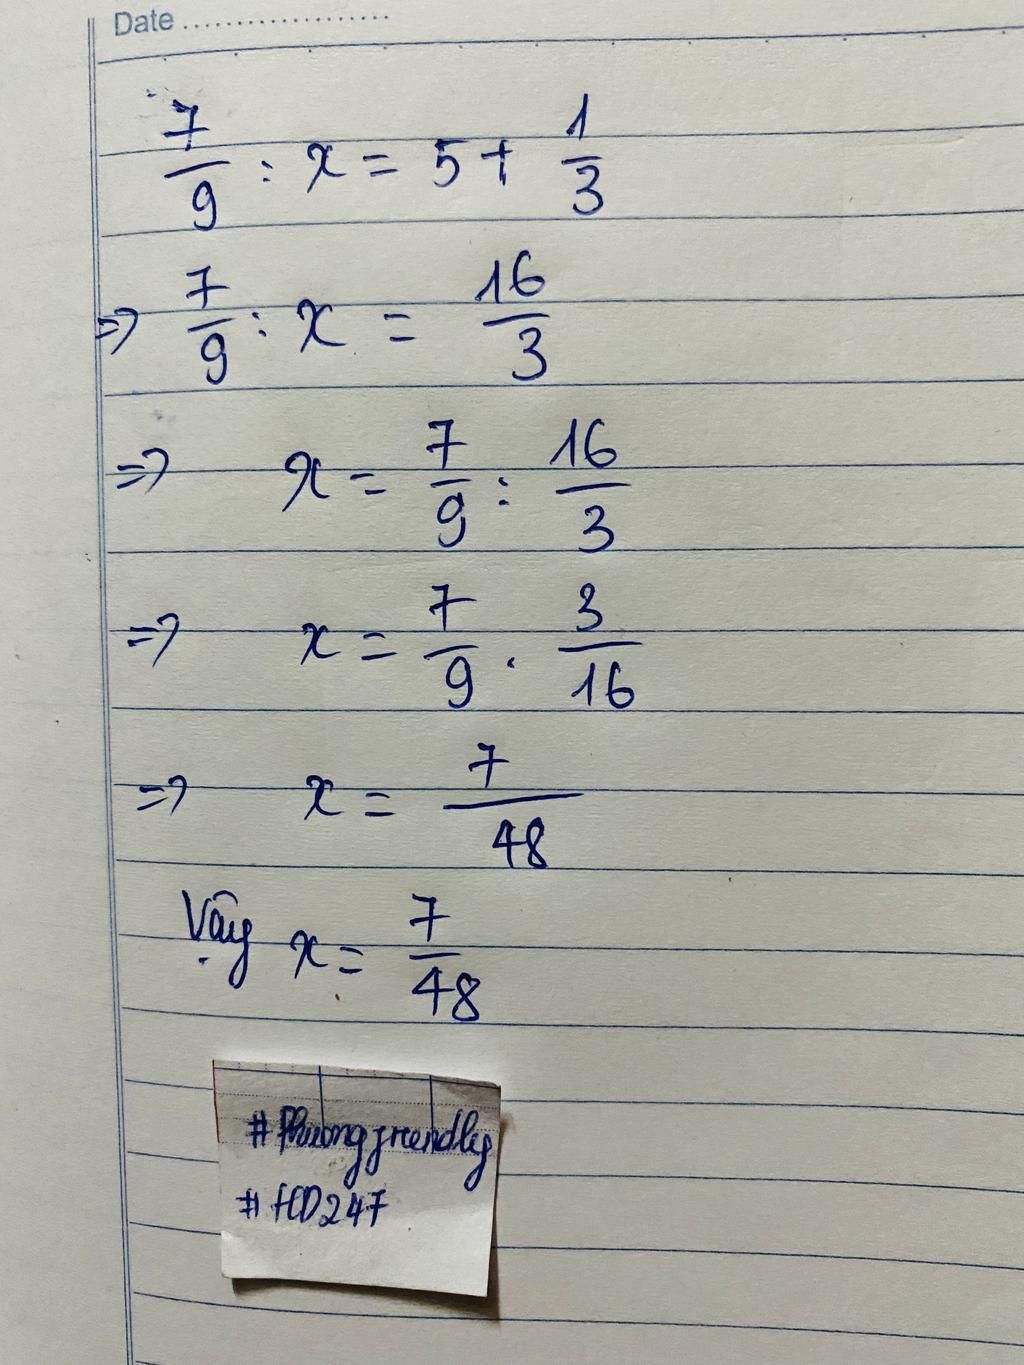 Date ....................
7/9 : x = 5 + 1/3
=> 7/9 : x = 16/3
=> x = 7/9 : 16/3
=> x = 7/9 . 3/16
=> x = 7/48
Vậy x = 7/48
#Phuongfriendly
#HD247